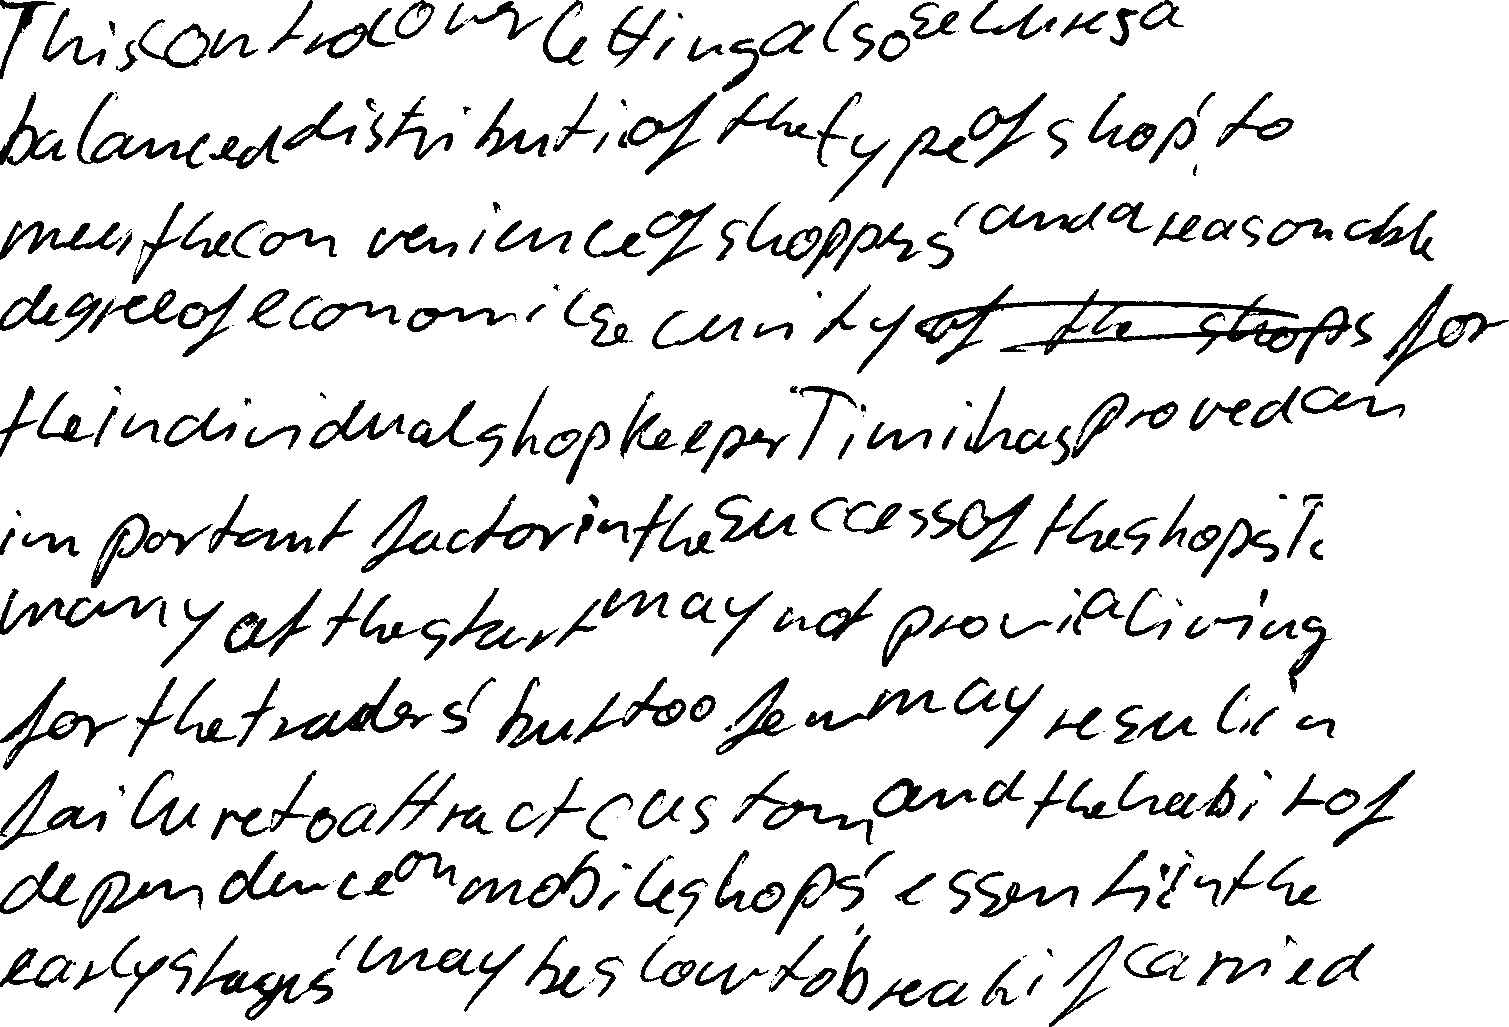 This control over letting also secures a
balanced distributi of the type of shop, to
meet the convenience of shoppers and a reasonable
degree of economic security of the shops for
the individual shopkeeper Timi has proved an
important factor in the success of the shops To
many at the start may not provi a living
for the traders but too few may result in
failure to attract custom, and the habit of
dependence on mobile shops, essenti in the
early stages may be slow to break if carried